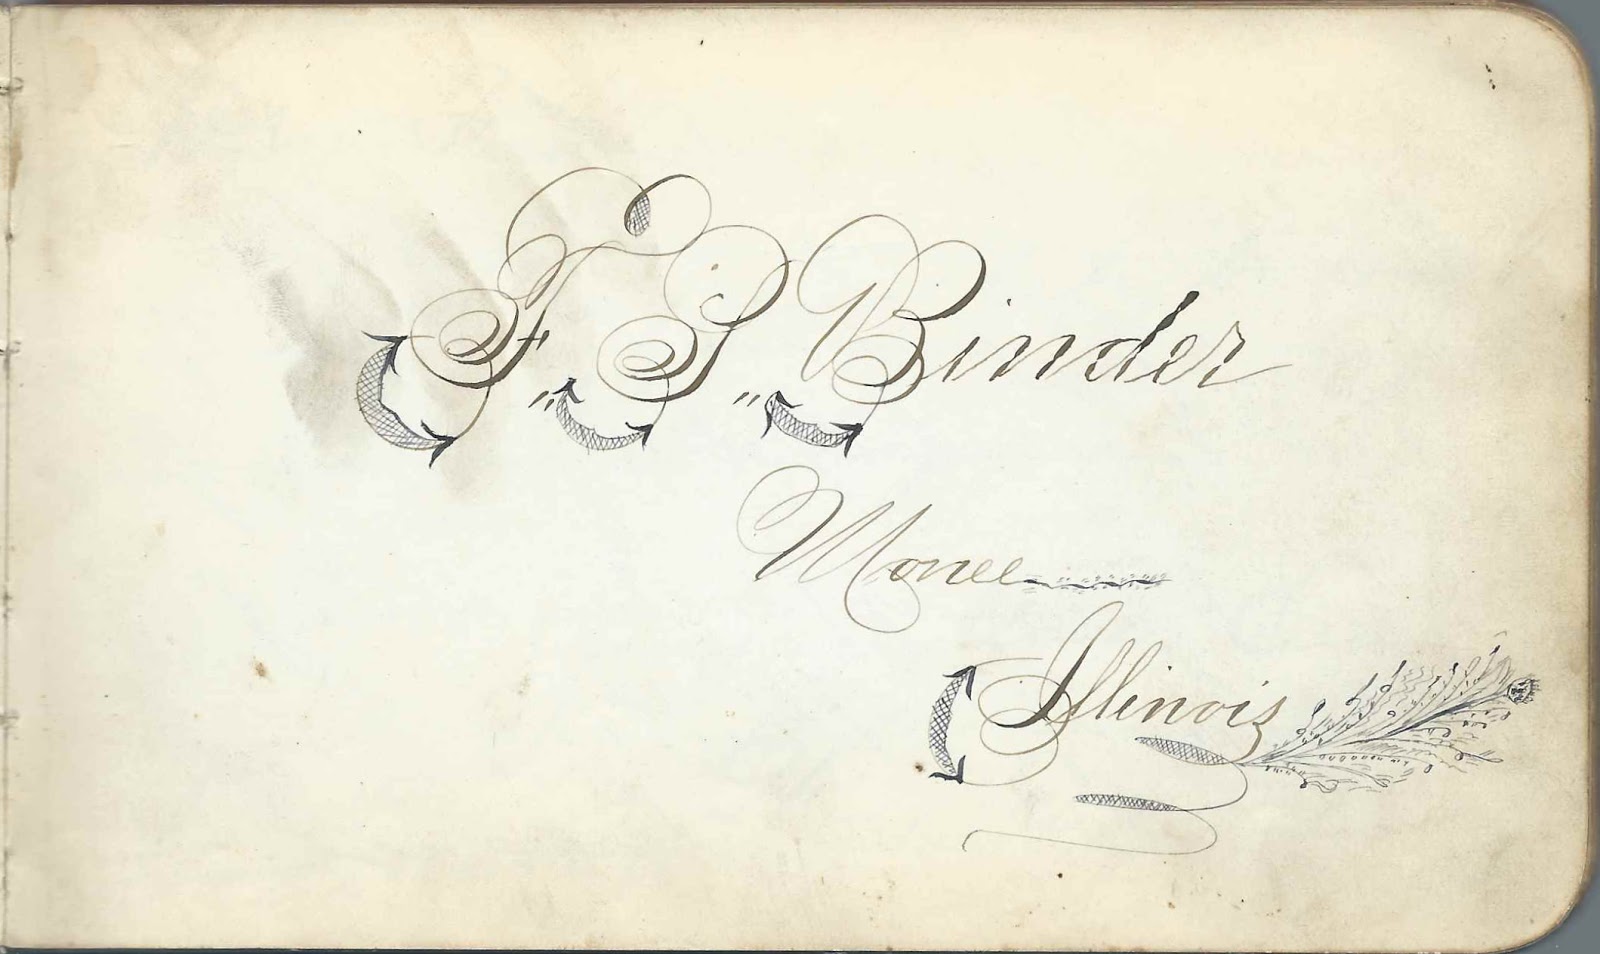 F. S. Binder
Monee
Illinois